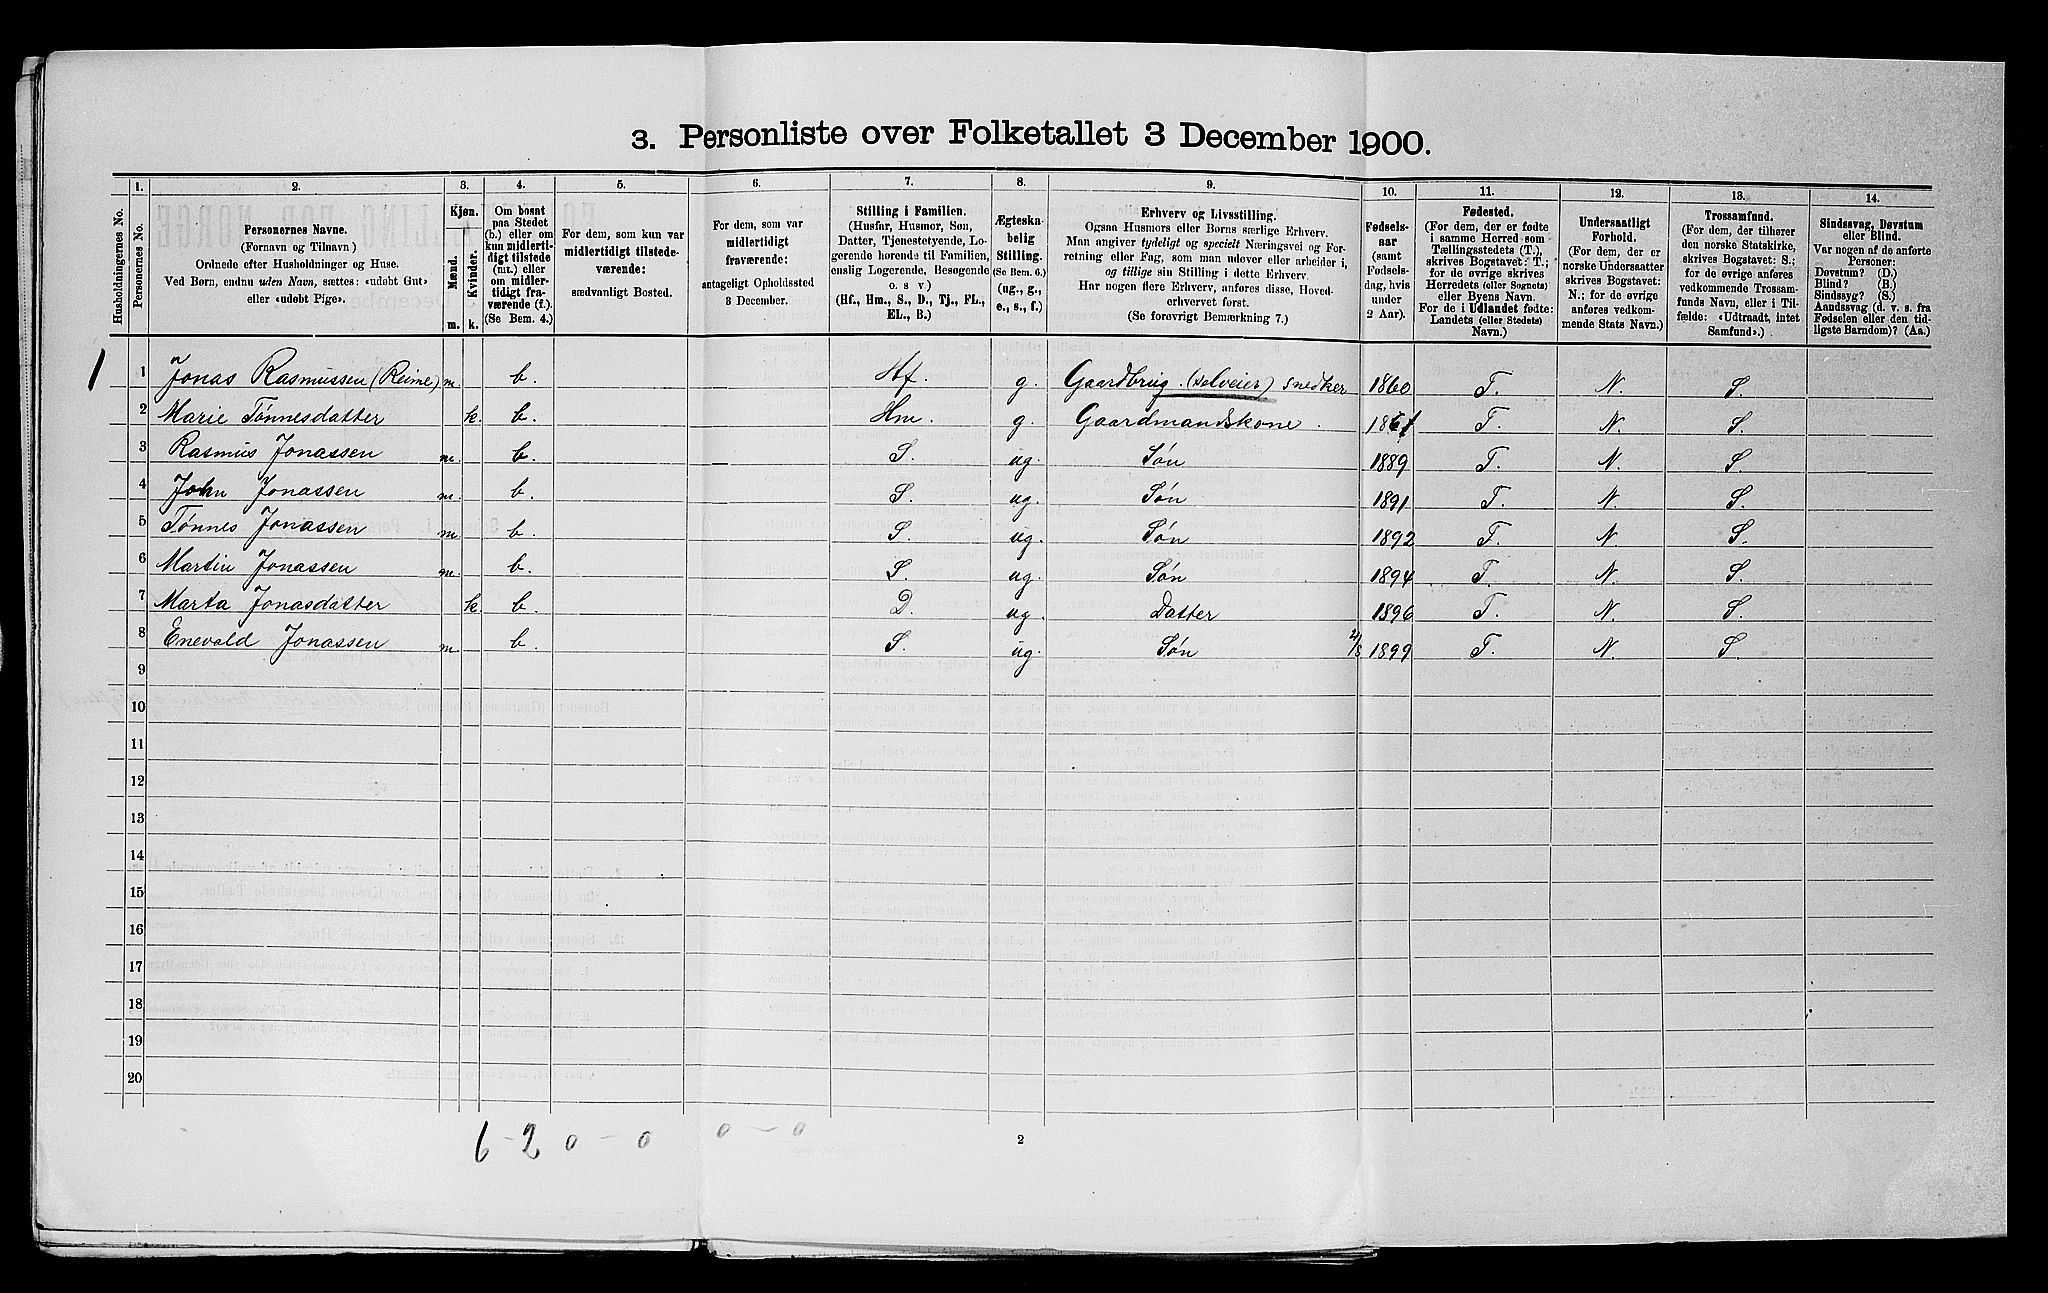 3. Personliste over Folketallet 3 December 1900.
1. 2. 3. 4. 5. 6. 7. 8. 9. 10. 11. 12. 13. 14.
Husholdningernes No.
Personernes No.
Personernes Navne.
(Fornavn og Tilnavn)
Ordnede efter Husholdninger og Huse.
Ved Børn, endnu uden Navn, sættes: «udøbt Gut»
eller «udøbt Pige».
Kjøn.
Mænd.
Kvinder.
m. k.
Om bosat
paa Stedet
(b.) eller om
kun midlerti-
digt tilstede
(mt.) eller
om midler-
tidigt fra-
værende (f.).
(Se Bem. 4.)
For dem, som kun var
midlertidigt tilstede-
værende:
sædvanligt Bosted.
For dem, som var
midlertidigt
fraværende:
antageligt Opholdssted
3 December.
Stilling i Familien.
(Husfar, Husmor, Søn,
Datter, Tjenestetyende, Lo-
gerende hørende til Familien,
enslig Logerende, Besøgende
o. s v)
(Hf., Hm., S., D., Tj., FL.,
EL., B.)
Ægteska-
belig
Stilling.
(Se Bem. 6.)
(ug., g.,
e., s., f.)
Erhverv og Livsstilling.
Ogsaa Husmors eller Børns særlige Erhverv.
Man angiver tydeligt og specielt Næringsvei og For-
retning eller Fag, som man udøver eller arbeider i,
og tillige sin Stilling i dette Erhverv.
Har nogen flere Erhverv, anføres disse, Hoved-
erhvervet først.
(Se forøvrigt Bemærkning 7.)
Fødsels-
aar
(samt
Fødsels-
dag, hvis
under
2 Aar).
Fødested.
(For dem, der er fødte
i samme Herred som
Tællingsstedets (T.),
skrives Bogstavet: T.;
for de øvrige skrives
Herredets (eller Sognets)
eller Byens Navn.
For de i Udlandet fødte:
Landets (eller Stedets)
Navn.)
Undersaatligt
Forhold.
(For dem, der er
norske Undersaatter
skrives Bogstavet:
N.; for de øvrige
anføres vedkom-
mende Stats Navn.)
Trossamfund.
(For dem, der tilhører
den norske Statskirke,
skrives Bogstavet: S.;
for de øvrige anføres
vedkommende Trossam-
funds Navn, eller i Til-
fælde: «Udtraadt, intet
Samfund».)
Sindssvag, Døvstum
eller Blind.
Var nogen af de anførte
Personer:
Døvstum? (D.)
Blind? (B.)
Sindssyg? (S.)
Aandssvag (d. v. s. fra
Fødselen eller den tid-
ligste Barndom)? (Aa.)
1 1 Jonas Rasmussen (Reime) m. b. Hf. g. Gaardbrug. (selveier) snedker 1860 T. N. S.
2 Marie Tønnesdatter k. b. Hm. g. Gaardmandskone. T. N. S.
3 Rasmus Jonassen m. b. S. ug. Søn 1889 T. N. S.
4 John Jonassen m. b. S. ug. Søn 1891 T. N. S.
5 Tønnes Jonassen m. b. S. ug. Søn 1892 T. N. S.
6 Martin Jonassen m. b. S. ug. Søn 1894 T. N. S.
7 Marta Jonasdatter k. b. D. ug. Datter 1896 T. N. S.
8 Enevald Jonassen m. b. S. ug. Søn 1899 T. N. S.
9
10
11
12
13
14
15
16
17
18
19
20
6-2 0-0 0-0
2